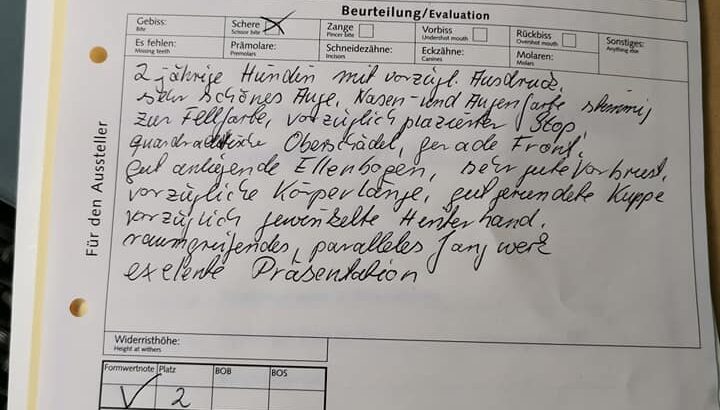 Beurteilung/Evaluation
Gebiss:
Bite
Schere
Scissor bite
Zange
Pincer bite
Vorbiss
Undershot mouth
Rückbiss
Overshot mouth
Sonstiges:
Anything else
Es fehlen:
Missing teeth
Prämolare:
Premolars
Schneidezähne:
Incisors
Eckzähne:
Canines
Molaren:
Molars
Für den Aussteller
2 jährige Hündin mit vorzügl. Ausdruck,
sehr schönes Auge, Nasen- und Augenfarbe stimmig
zur Fellfarbe, vorzüglich plazierter Stop,
quardratische Oberschädel, gerade Front,
gut anliegende Ellenbogen, sehr gute Vorbrust,
vorzügliche Körperlänge, gut gerundete Kuppe
vorzüglich gewinkelte Hinterhand.
raumgreifendes, paralleles Gangwerk
exelente Präsentation
Widerristhöhe:
Height at withers
Formwertnote Platz BOB BOS
V 2